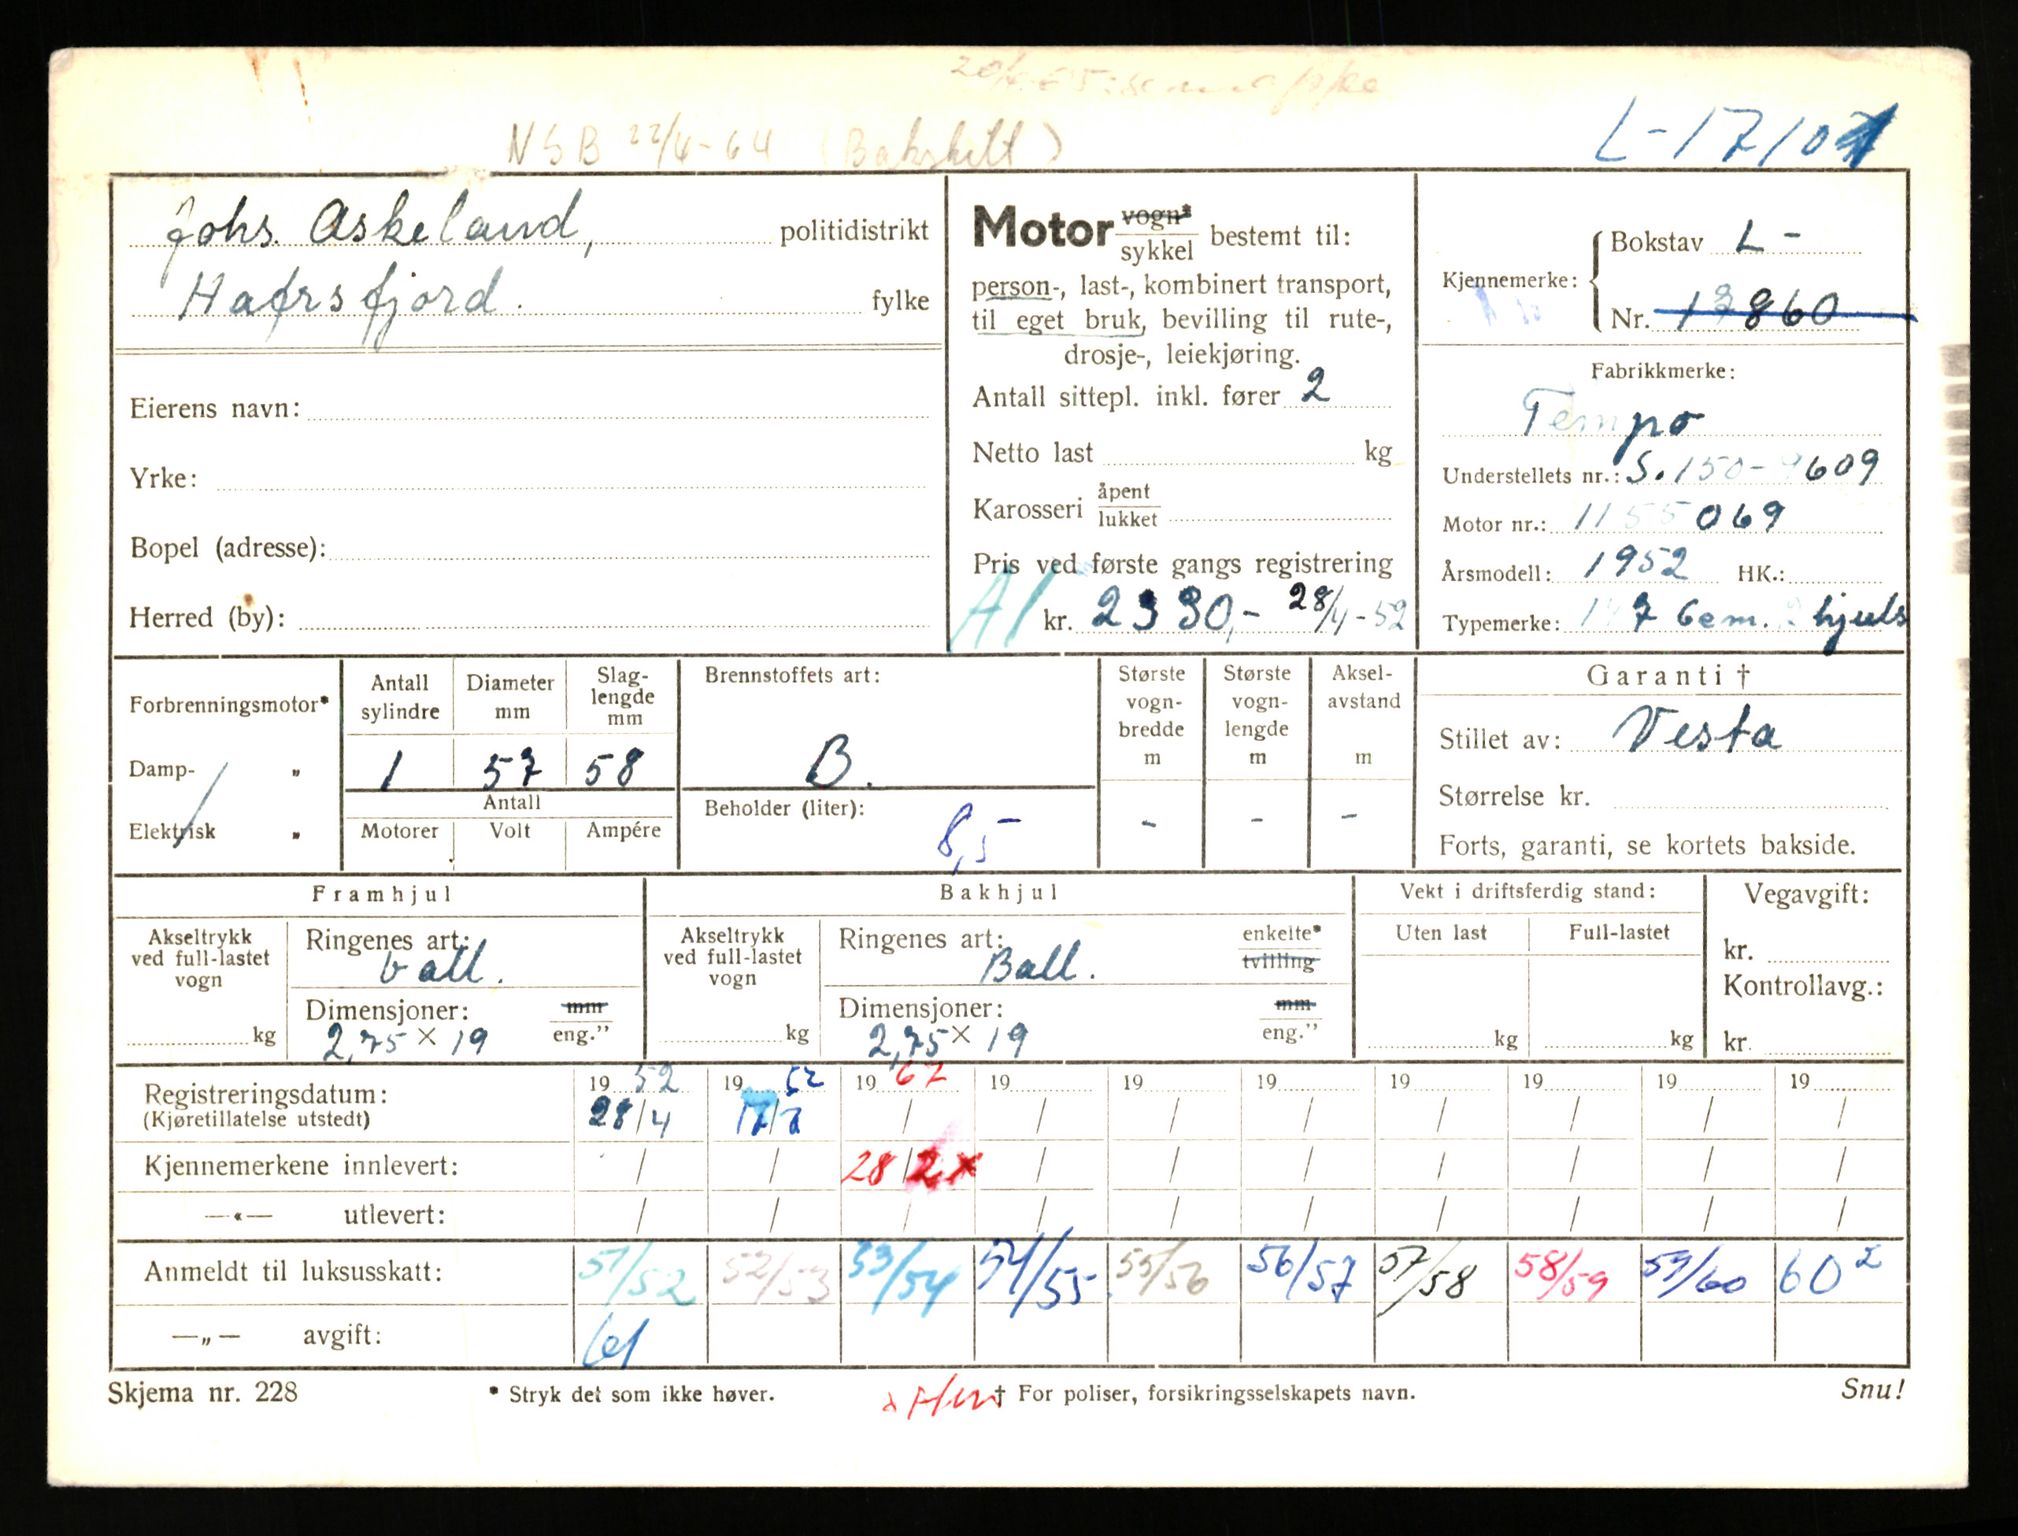 NSB 22/4-64 (Bakskilt)
L-17101
Johs. Askeland, politidistrikt
Hafrsfjord. fylke
Eierens navn:
Yrke:
Bopel (adresse):
Herred (by):
Motor vogn* / sykkel bestemt til:
person-, last-, kombinert transport,
til eget bruk, bevilling til rute-,
drosje-, leiekjøring.
Antall sittepl. inkl. fører 2
Netto last kg
Karosseri åpent / lukket
Pris ved første gangs registrering
A1 kr. 2330,- 28/4-52
Kjennemerke: Bokstav L-
Nr. 17860
Fabrikkmerke:
Tempo
Understellets nr.: S.150-9609
Motor nr.: 1155069
Årsmodell: 1952 HK.:
Typemerke: 147 6cm. 2 hjuls
Forbrenningsmotor*
Damp- "
Elektrisk "
Antall sylindre
1
Diameter mm
57
Slaglengde mm
58
Antall
Motorer Volt Ampére
Brennstoffets art:
B.
Beholder (liter):
8,5
Største vogn-bredde m
-
Største vogn-lengde m
-
Aksel-avstand m
-
Garanti †
Stillet av: Vesta
Størrelse kr.
Forts, garanti, se kortets bakside.
Framhjul
Akseltrykk ved full-lastet vogn
kg
Ringenes art:
ball.
Dimensjoner: mm / eng."
2,75 × 19
Bakhjul
Akseltrykk ved full-lastet vogn
kg
Ringenes art: enkelte* / tvilling
Ball.
Dimensjoner: mm / eng."
2,75 × 19
Vekt i driftsferdig stand:
Uten last Full-lastet
kg kg
Vegavgift:
kr.
Kontrollavg.:
kr.
Registreringsdatum: 19 52 19 52 19 67 19 19 19 19 19 19 19
(Kjøretillatelse utstedt) 28/4 17/7 / / / / / / / /
Kjennemerkene innlevert: / / 28/2 x / / / / / / /
—«— utlevert: / / / / / / / / / /
Anmeldt til luksusskatt: 51/52 52/53 53/54 54/55 55/56 56/57 57/58 58/59 59/60 60 2
—„— avgift: 61
Skjema nr. 228 * Stryk det som ikke høver. † For poliser, forsikringsselskapets navn. Snu!